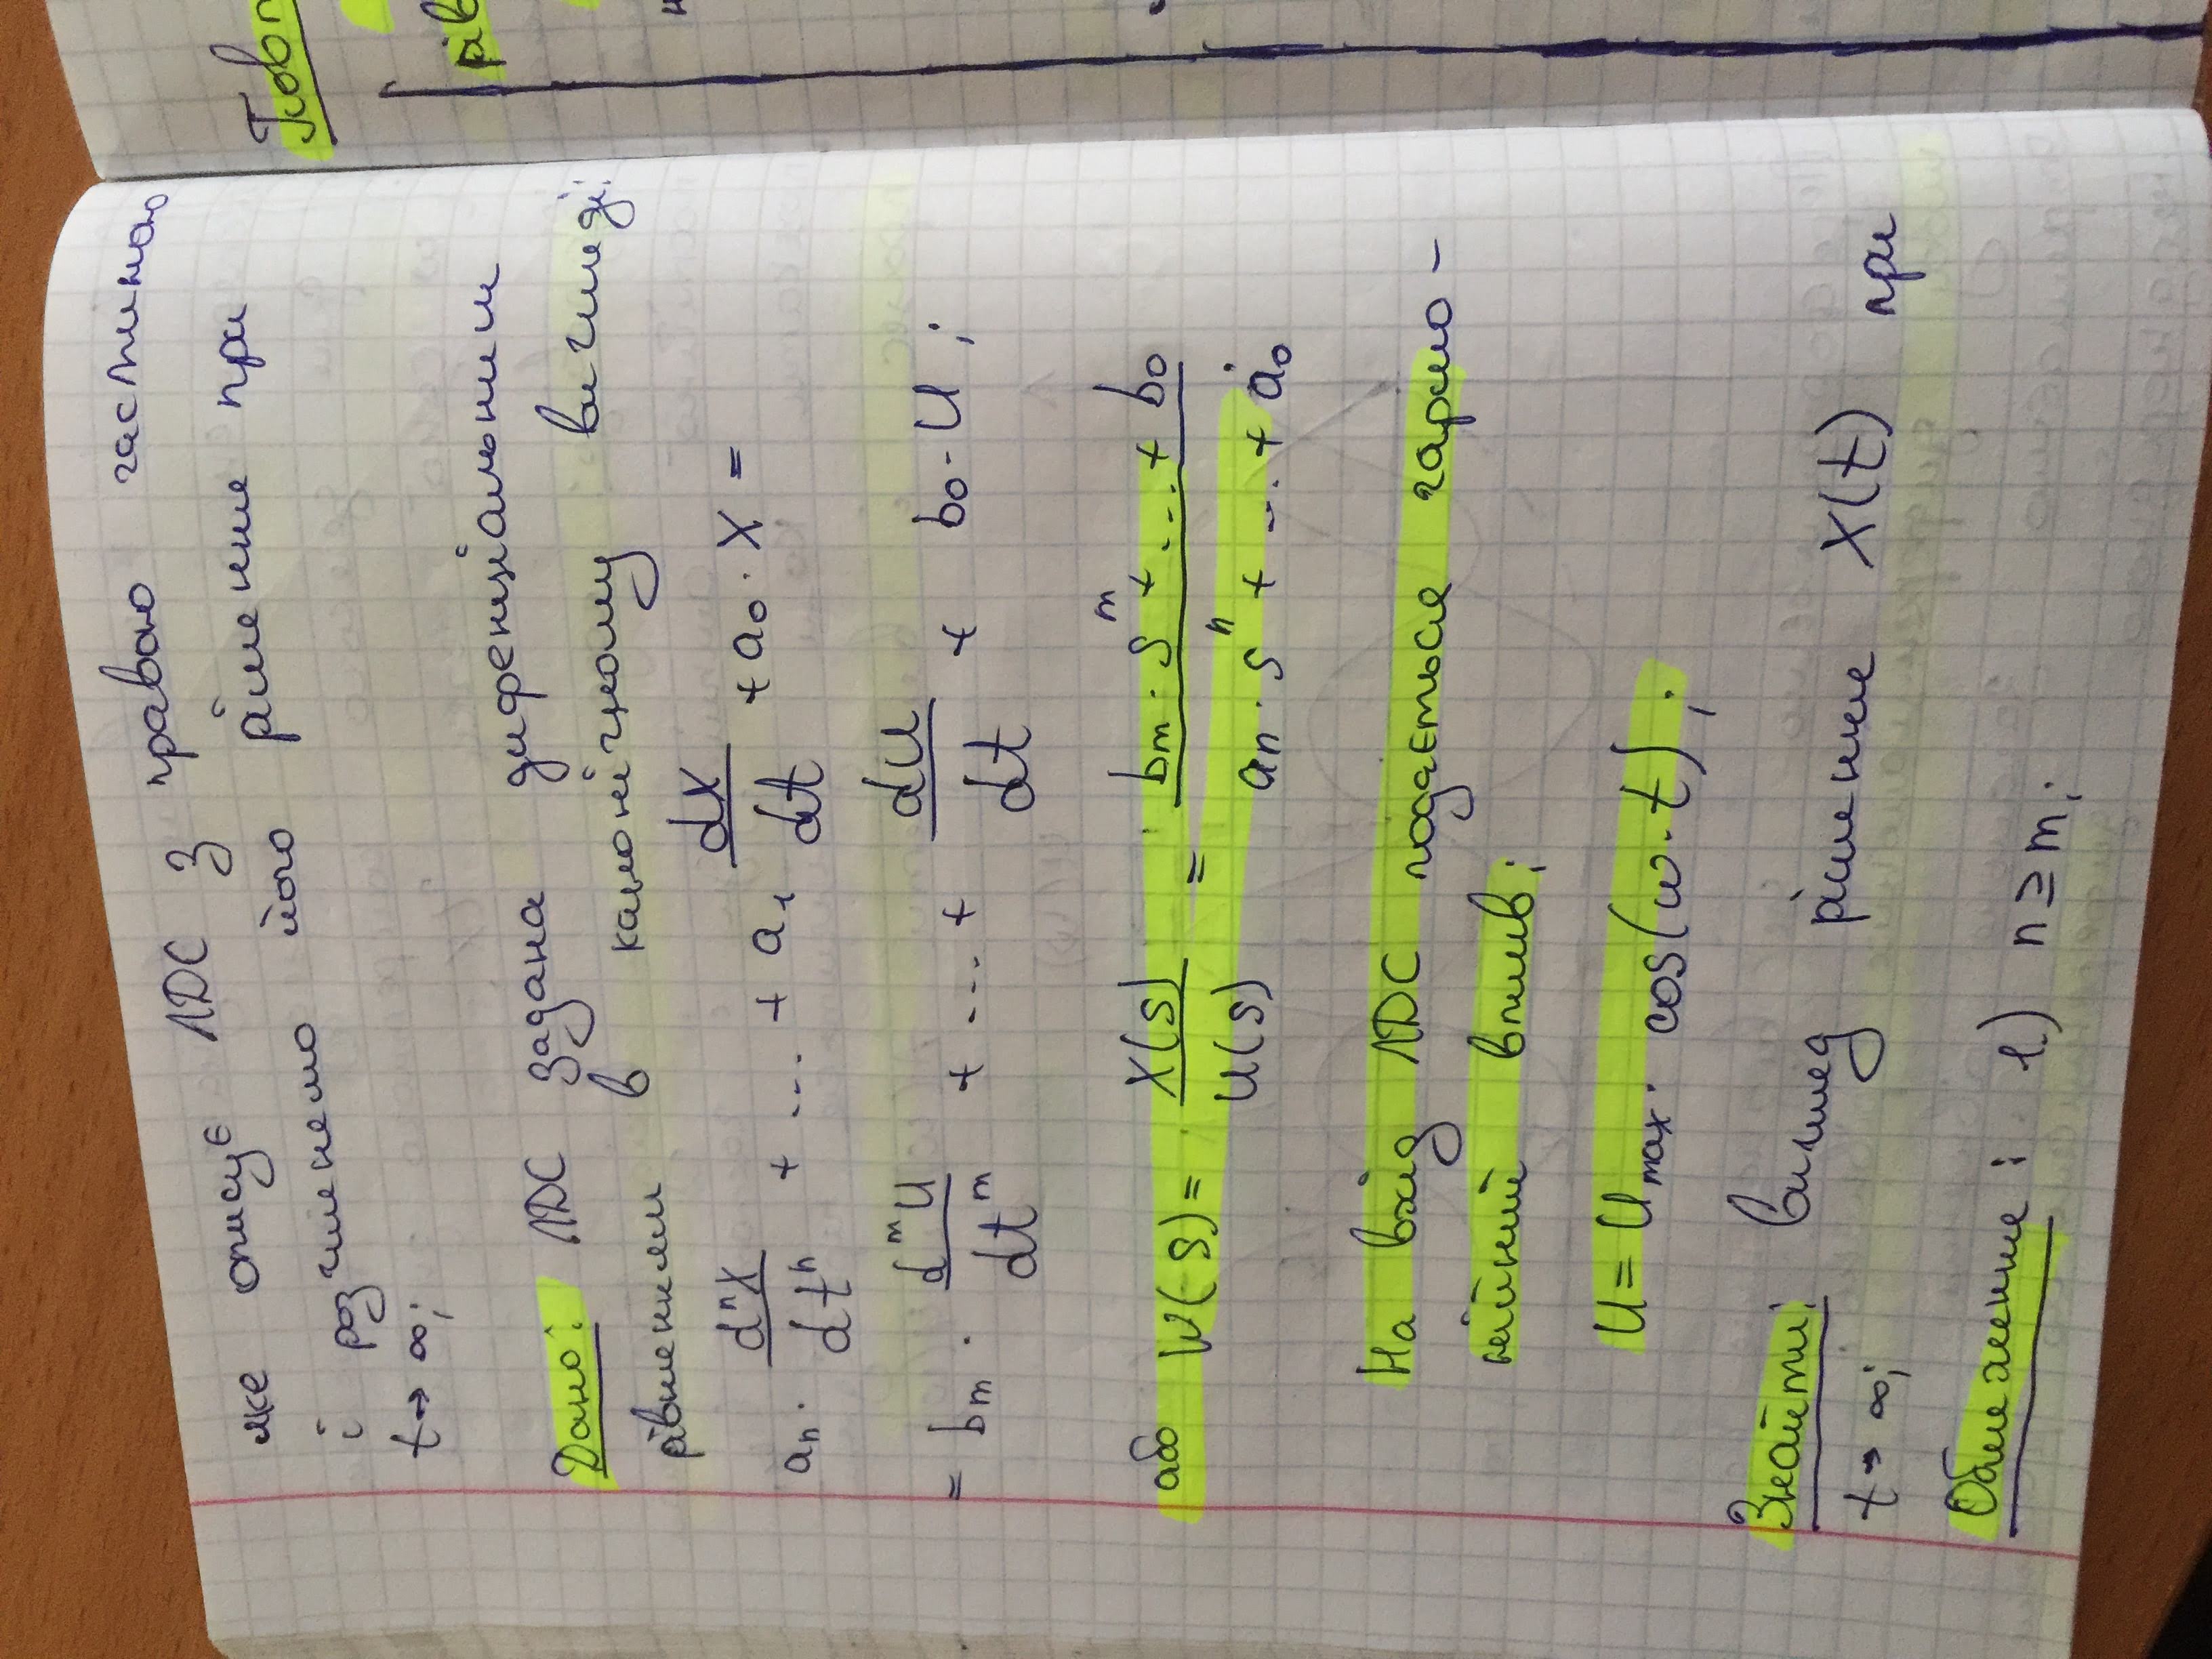 яке описує ЛДС з правою частиною
і розглянемо його рішення при
t→ ∞;
Дано: ЛДС задана дифенціальним
рівнянням в канонічному вигляді:
aₙ · dⁿX/dtⁿ + ... + a₁ dX/dt + a₀ · X =
= bₘ · dᵐU/dtᵐ + ... + dU/dt + b₀ · U ;
або W(s) = X(s)/U(s) = (bₘ · sᵐ + ... + b₀)/(aₙ · sⁿ + ... + a₀)
На вхід ЛДС подається гармо-
нійний вплив;
U = Umax · cos(w · t) ;
Знайти: вигляд рішення X(t) при
t→ ∞;
Обмеження : 1.) n ≥ m;
Повт
рів